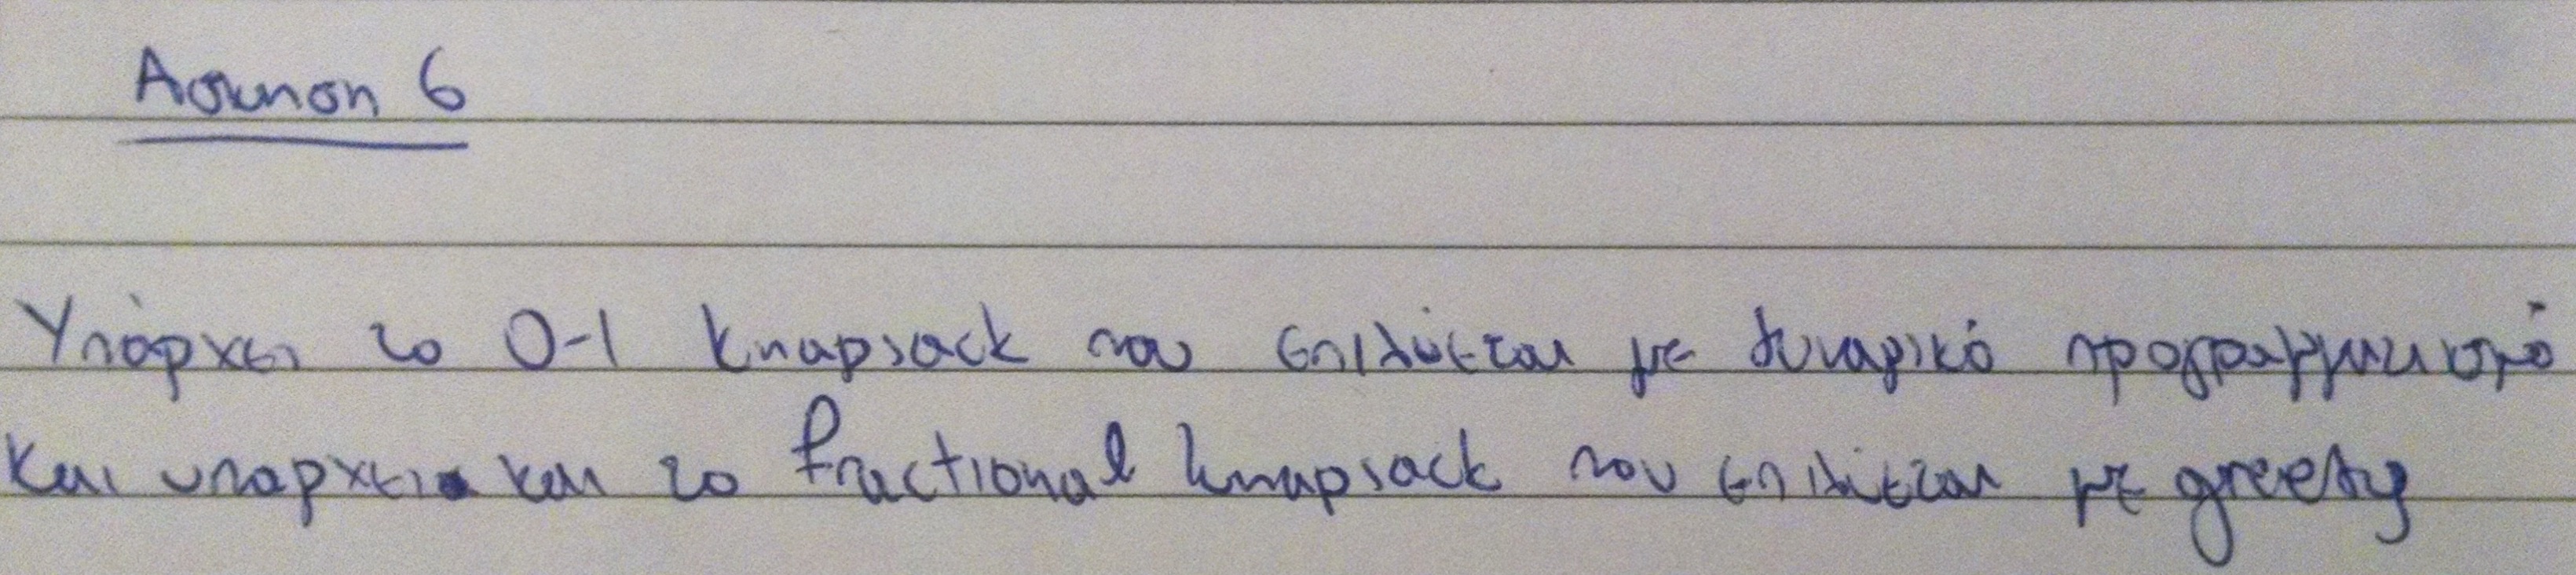 Ασκηση 6
Υπάρχει το 0-1 knapsack που επιλύεται με δυναμικό προγραμματισμό
και υπαρχει και το fractional knapsack που επιλύεται με greedy